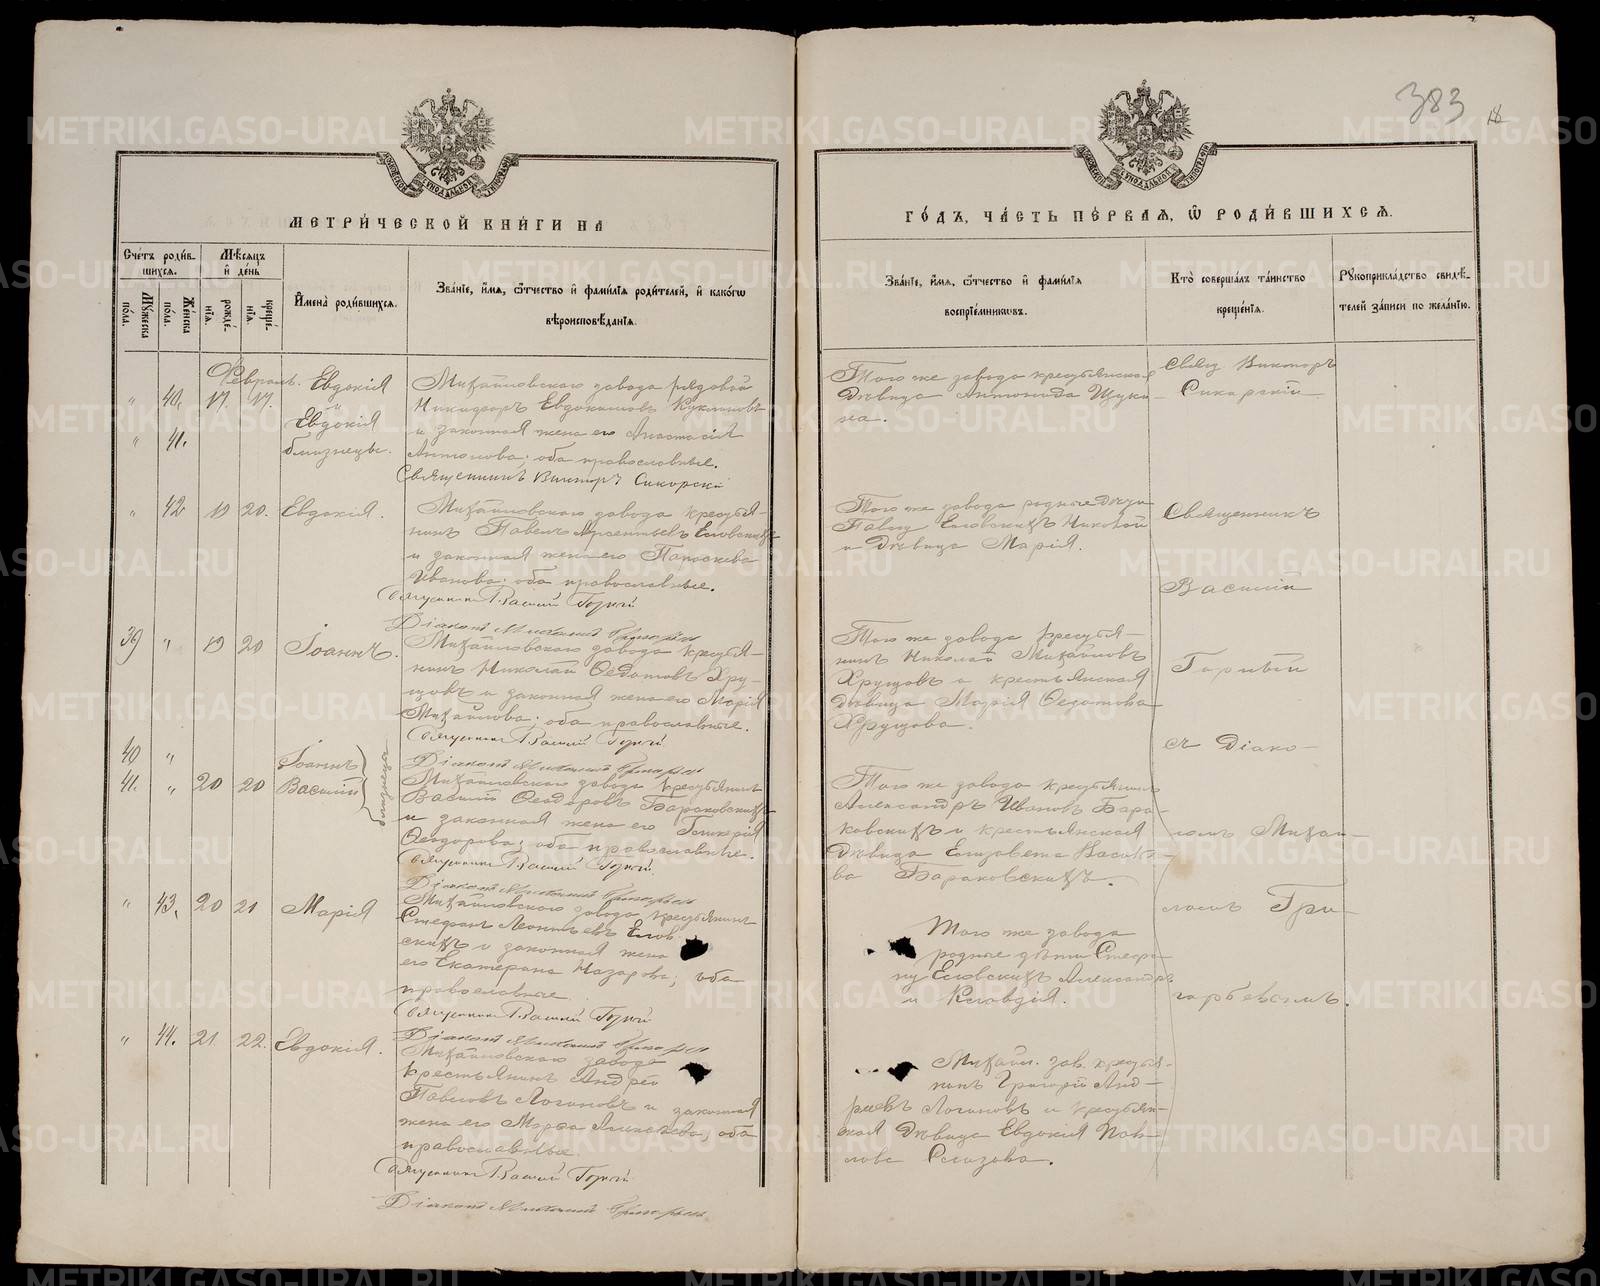 383
МЕТРИ́ЧЕСКОЙ КНИ́ГИ НА
ГО́ДЪ, ЧА́СТЬ ПЕ́РВАѦ, Ѡ РОДИ́ВШИХСѦ.
Сче́тъ роди́в-
шихсѧ.
Мѣ́сѧцъ
и́ де́нь
Мꙋ́жеска
по́ла.
Же́нска
по́ла.
рожде́-
нїѧ.
креще́-
нїѧ.
И҆мена̀ роди́вшихсѧ.
Зва́нїе, и҆́мѧ, ѻ҆́тчество и҆ фами́лїѧ роди́телей, и҆ како́гѡ
вѣроисповѣ́данїѧ.
Зва́нїе, и҆́мѧ, ѻ҆́тчество и҆ фами́лїѧ
воспрїе́мникѡвъ.
Кто̀ соверша́лъ та́инство
креще́нїѧ.
Рꙋкоприкла́дство свидѣ́-
телей за́писи по жела́нїю.
Февраль.
" 40. 17. 17. Евдокія
" 41. Евдокія
близнецы.
Михайловскаго завода рядовой
Никифоръ Евдокимовъ
и законная жена его Анастасія
Антонова; оба православные.
Священникъ Викторъ Сикорскій
Того же завода крестьянская
дѣвица Антонида Щуки-
на.
Свящ. Викторъ
Сикорскій
" 42 19 20. Евдокія.
Михайловскаго завода крестья-
нинъ Павелъ Еловскихъ
и законная жена его Параскева
Иванова; оба православные.
Священникъ Василій Горный
Діаконъ Михаилъ
Того же завода родные дѣти
Павла Еловскихъ Николай
и дѣвица Марія.
Священникъ
Василій
39 " 19 20 Іоаннъ.
Михайловскаго завода крестья-
нинъ Николай Федотовъ Хру-
щовъ и законная жена его Марія
Михайлова; оба православные.
Священникъ Василій Горный
Діаконъ Михаилъ
Того же завода крестья-
нинъ Николай Михайловъ
Хрущовъ и крестьянская
дѣвица Марія Федотова
Хрущова.
съ діако-
40 " Іоаннъ
41. " 20 20 Василій
близнецы
Михайловскаго завода крестьянинъ
Василій Феодоровъ Бараковскихъ
и законная жена его Гликерія
Феодорова; оба православные.
Священникъ Василій Горный
Діаконъ Михаилъ
Того же завода крестьянинъ
Александръ Ивановъ Бара-
ковскихъ и крестьянская
дѣвица Елизавета Василье-
ва Бараковскихъ.
номъ Михаи-
ломъ Гри-
" 43. 20 21 Марія
Михайловскаго завода крестьянинъ
Стефанъ Леонтьевъ Елов-
скихъ и законная жена
его Екатерина Назарова; оба
православные
Священникъ Василій Горный
Діаконъ Михаилъ
Того же завода
родные дѣти Стефа-
на Еловскихъ Александръ
и Клавдія.
" 44. 21 22. Евдокія.
Михайловскаго завода
крестьянинъ Андрей
Павловъ Логиновъ и законная
жена его Марѳа Алексѣева; оба
православные.
Священникъ Василій Горный
Діаконъ Михаилъ
Михайл. зав. крестья-
нинъ Григорій Анд-
реевъ Логиновъ и крестьян-
ская дѣвица Евдокія Пав-
лова
METRIKI.GASO-URAL.RU